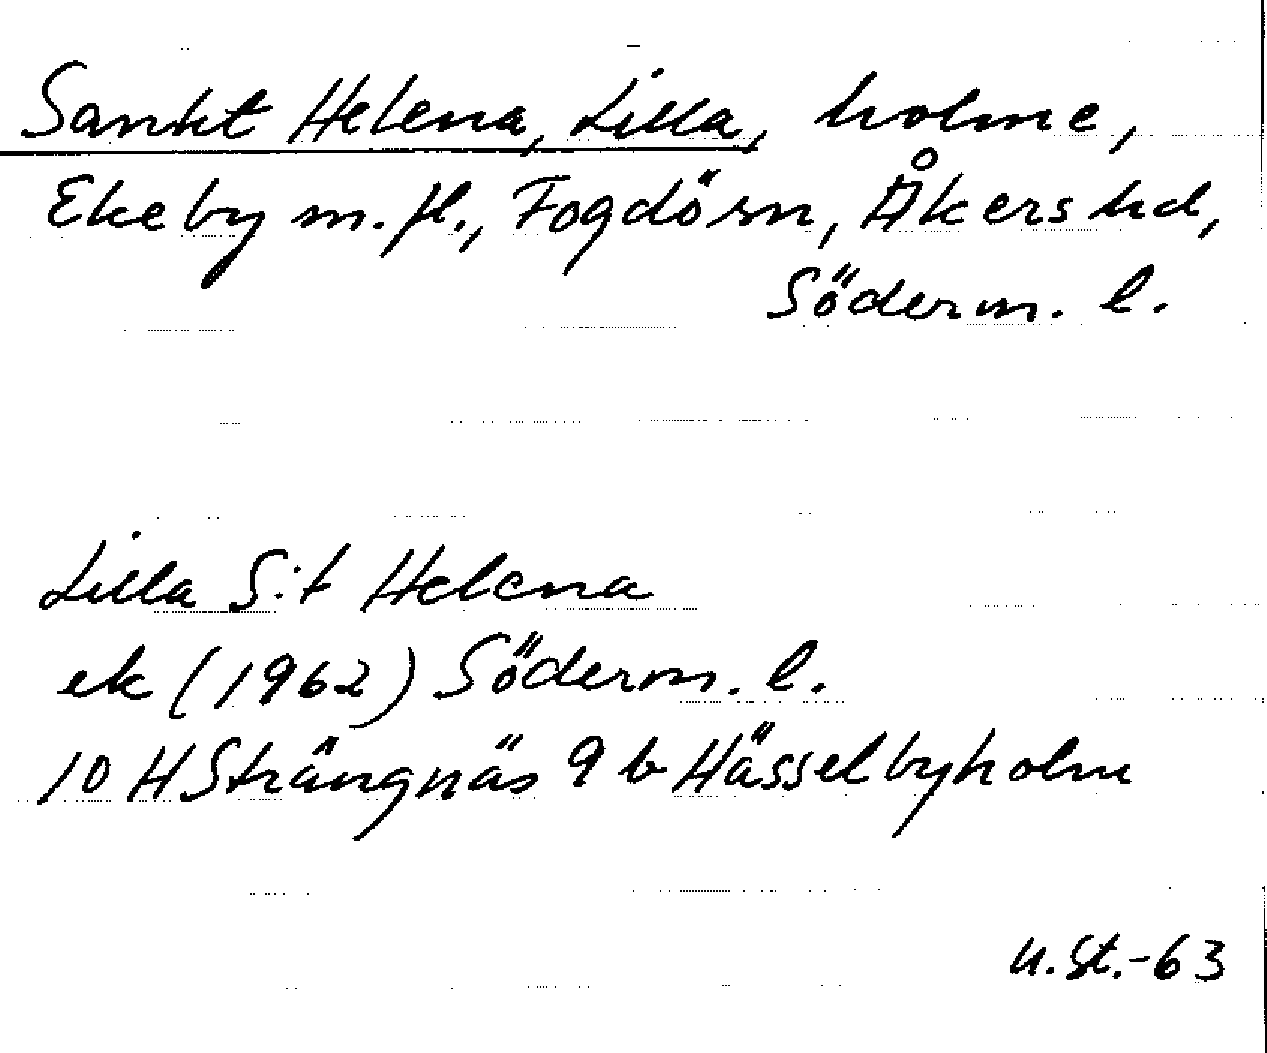 Sankt Helena, Lilla, holme,
Ekeby m.fl., Fogdösn, Åkers hd,
Söderm. l.
Lilla S:t Helena
ek (1962) Söderm. l.
10 H Strängnäs 9 b Hässelbyholm
U.St.-63